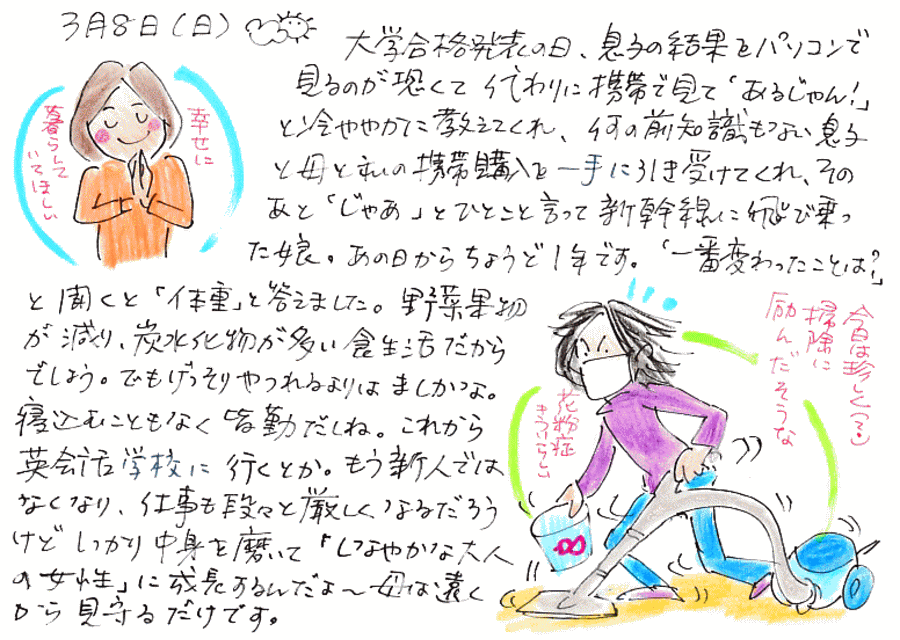 3月8日(日)
大学合格発表の日、息子の結果をパソコンで
見るのが恐くて代わりに携帯で見て「あるじゃん!」
と冷ややかに教えてくれ、何の前知識もない息子
と母と私の携帯購入を一手に引き受けてくれ、その
あと「じゃあ」とひとこと言って新幹線に飛び乗っ
た娘。あの日からちょうど1年です。「一番変わったことは?」
と聞くと「体重」と答えました。野菜果物
が減り、炭水化物が多い食生活だから
でしょう。でもげっそりやつれるよりはましかな。
寝込むこともなく皆勤だしね。これから
英会話学校に行くとか。もう新人では
なくなり、仕事も段々と厳しくなるだろう
けどしっかり中身を磨いて「しなやかな大人
の女性」に成長するんだよ〜母は遠く
から見守るだけです。
幸せに
暮らして
いてほしい
今日は珍しく(?)
掃除に
励んだそうな
花粉症
きついらしい